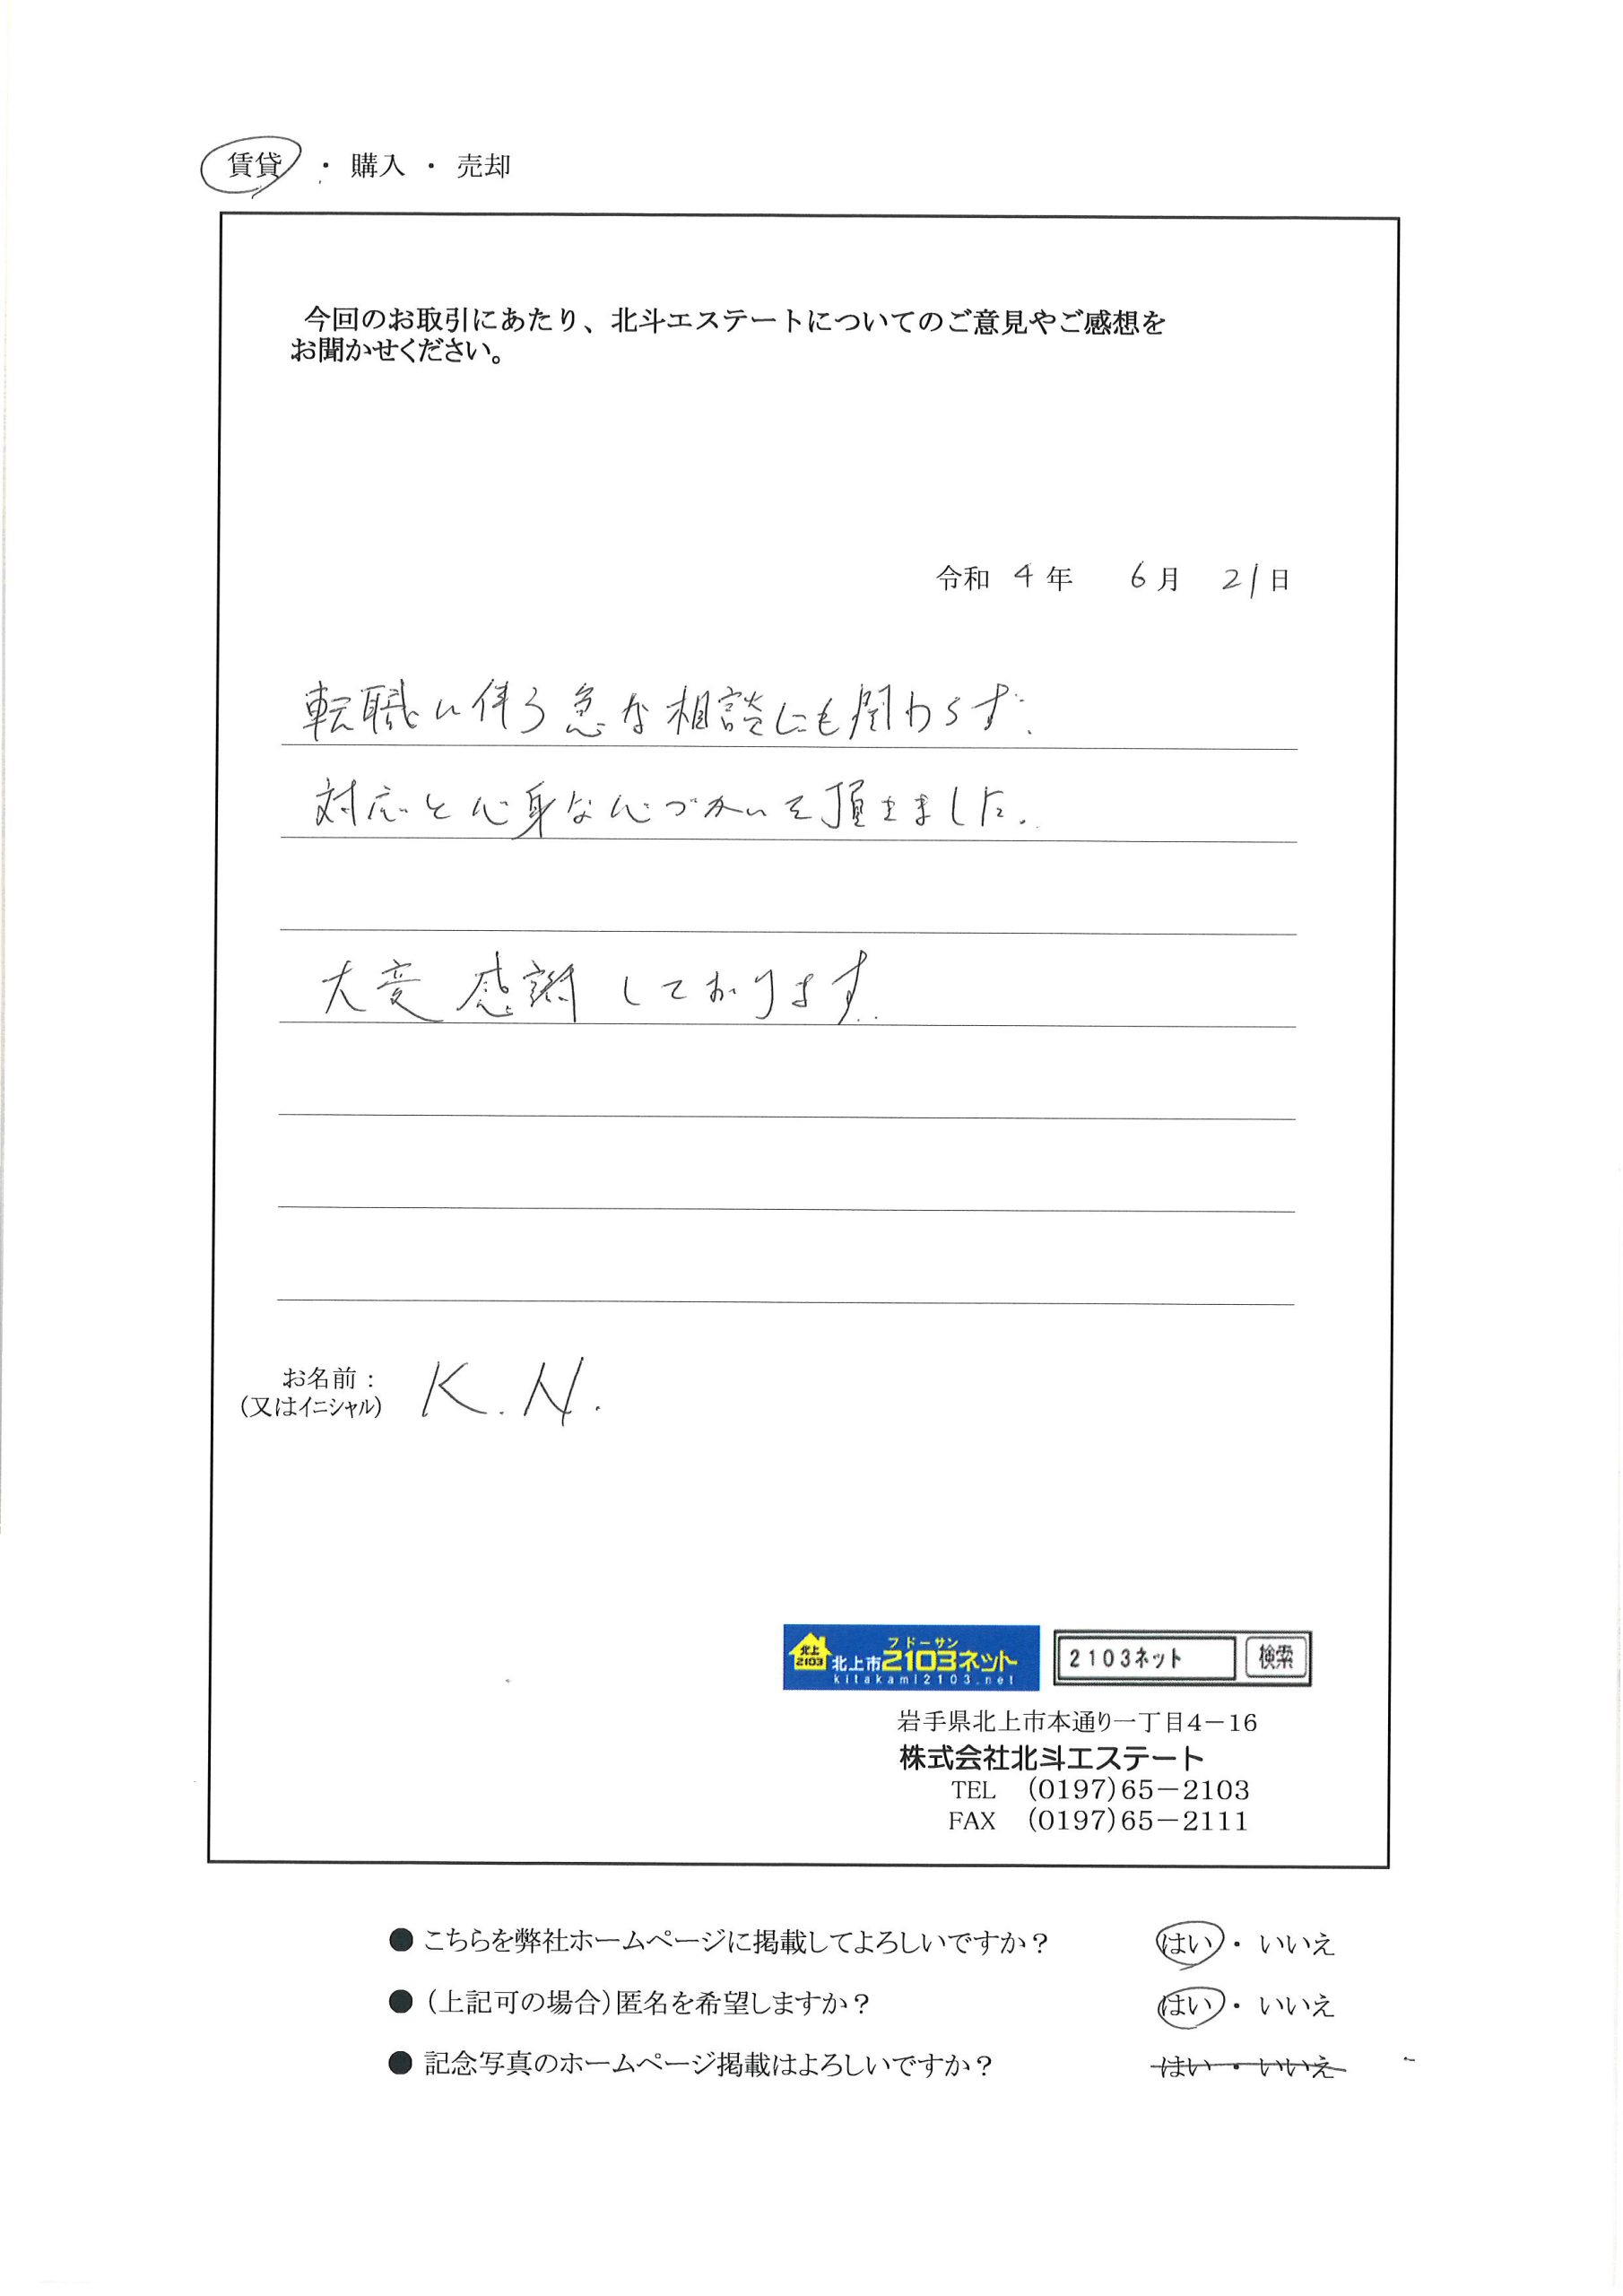 賃貸 ・ 購入 ・ 売却
今回のお取引にあたり、北斗エステートについてのご意見やご感想を
お聞かせください。
令和 4 年 6 月 21 日
転職に伴う急な相談にも関わらず、
対応と心身な心づかいを頂きました。
大変感謝しております。
お名前：
(又はイニシャル) K.N.
北上
2103
フドーサン
北上市2103ネット
kitakami2103.net
2103ネット 検索
岩手県北上市本通り一丁目4－16
株式会社北斗エステート
TEL (0197)65－2103
FAX (0197)65－2111
● こちらを弊社ホームページに掲載してよろしいですか？ はい ・ いいえ
● (上記可の場合)匿名を希望しますか？ はい ・ いいえ
● 記念写真のホームページ掲載はよろしいですか？ はい ・ いいえ